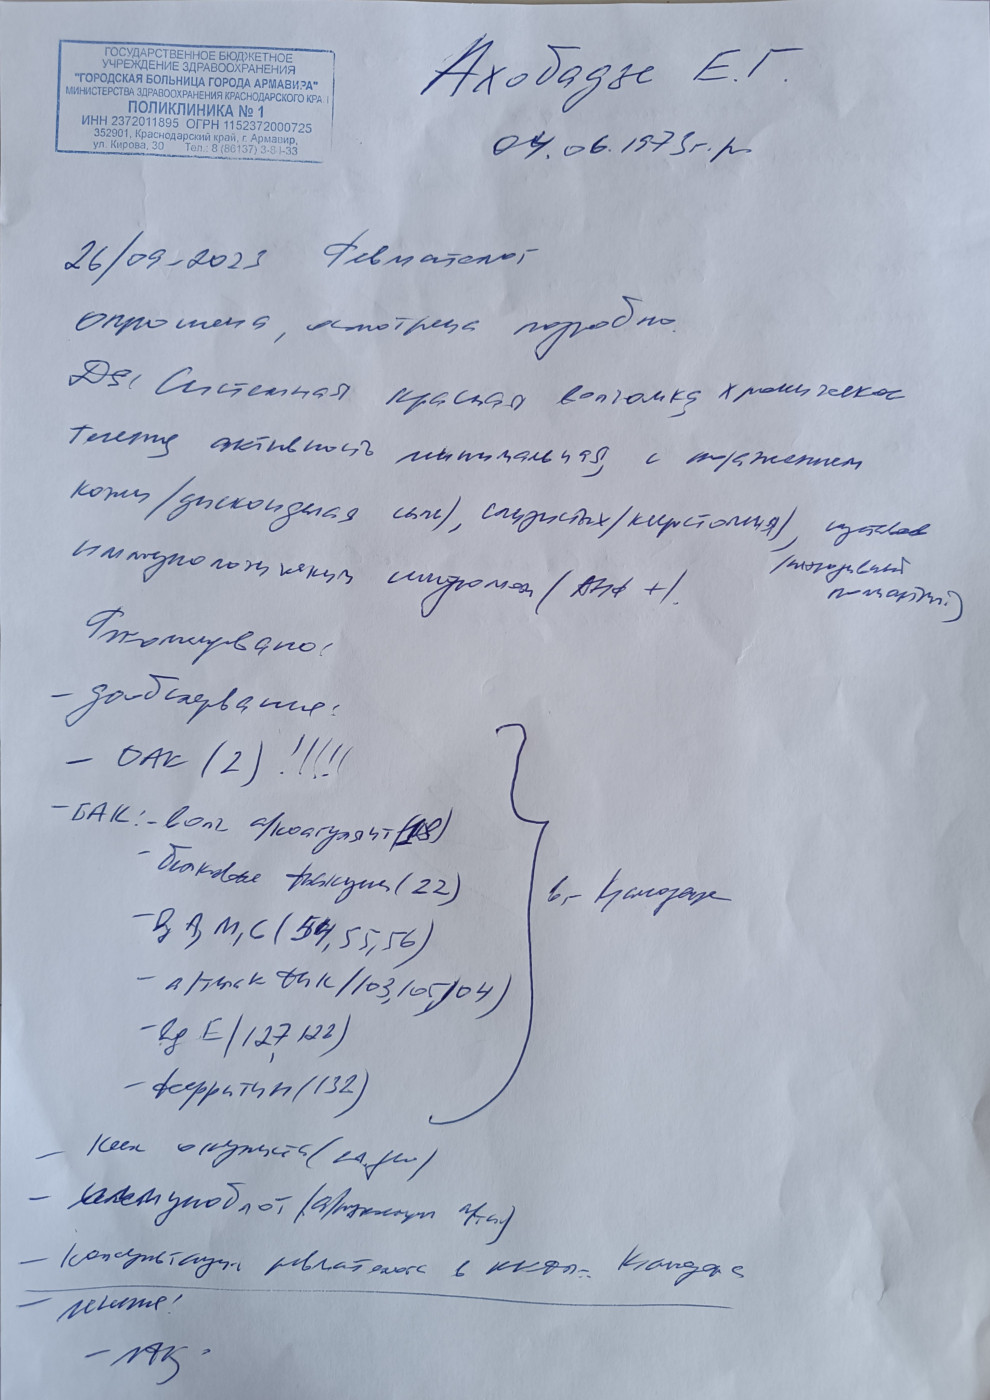 ГОСУДАРСТВЕННОЕ БЮДЖЕТНОЕ
УЧРЕЖДЕНИЕ ЗДРАВООХРАНЕНИЯ
"ГОРОДСКАЯ БОЛЬНИЦА ГОРОДА АРМАВИРА"
МИНИСТЕРСТВА ЗДРАВООХРАНЕНИЯ КРАСНОДАРСКОГО КРА
ПОЛИКЛИНИКА № 1
ИНН 2372011895 ОГРН 1152372000725
352901, Краснодарский край, г. Армавир,
ул. Кирова, 30 Тел.: 8 (86137) 3-8-33
Ахобадзе Е.Г.
04.06.1973г.р
26/09-2023 Ревматолог
опрошена, осмотрена подробно.
DS: Системная красная волчанка хроническое
течение активность минимальная, с поражением
кожи (дискоидная сыпь), слизистых
иммунологическим синдромом (АНФ +).
Рекомендовано:
- дообследование:
- ОАК (2) !!!!!
- БАК: - волч а/коагулянт (18)
- белковые фракции (22)
- Ig A, M, G (54, 55, 56)
- (103, 105, 104)
- Ig E (127, 122)
- ферритин (132)
в г. Краснодаре
- иммуноблот
- консультация ревматолога в Краснодара
- лечение: